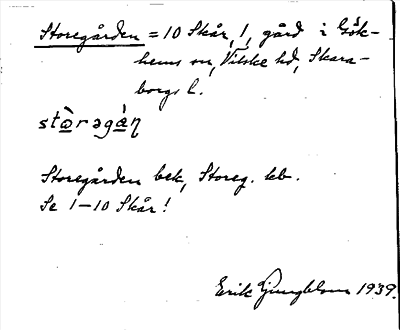 Storegården = 10 Skår, 1, gård i Gök-
hems sn, Vilske hd, Skara-
borgs l.
stò̲rəgà̲ṇ
Storegården bek, Storeg. kb.
Se 1–10 Skår!
Erik Ljungblom 1939.